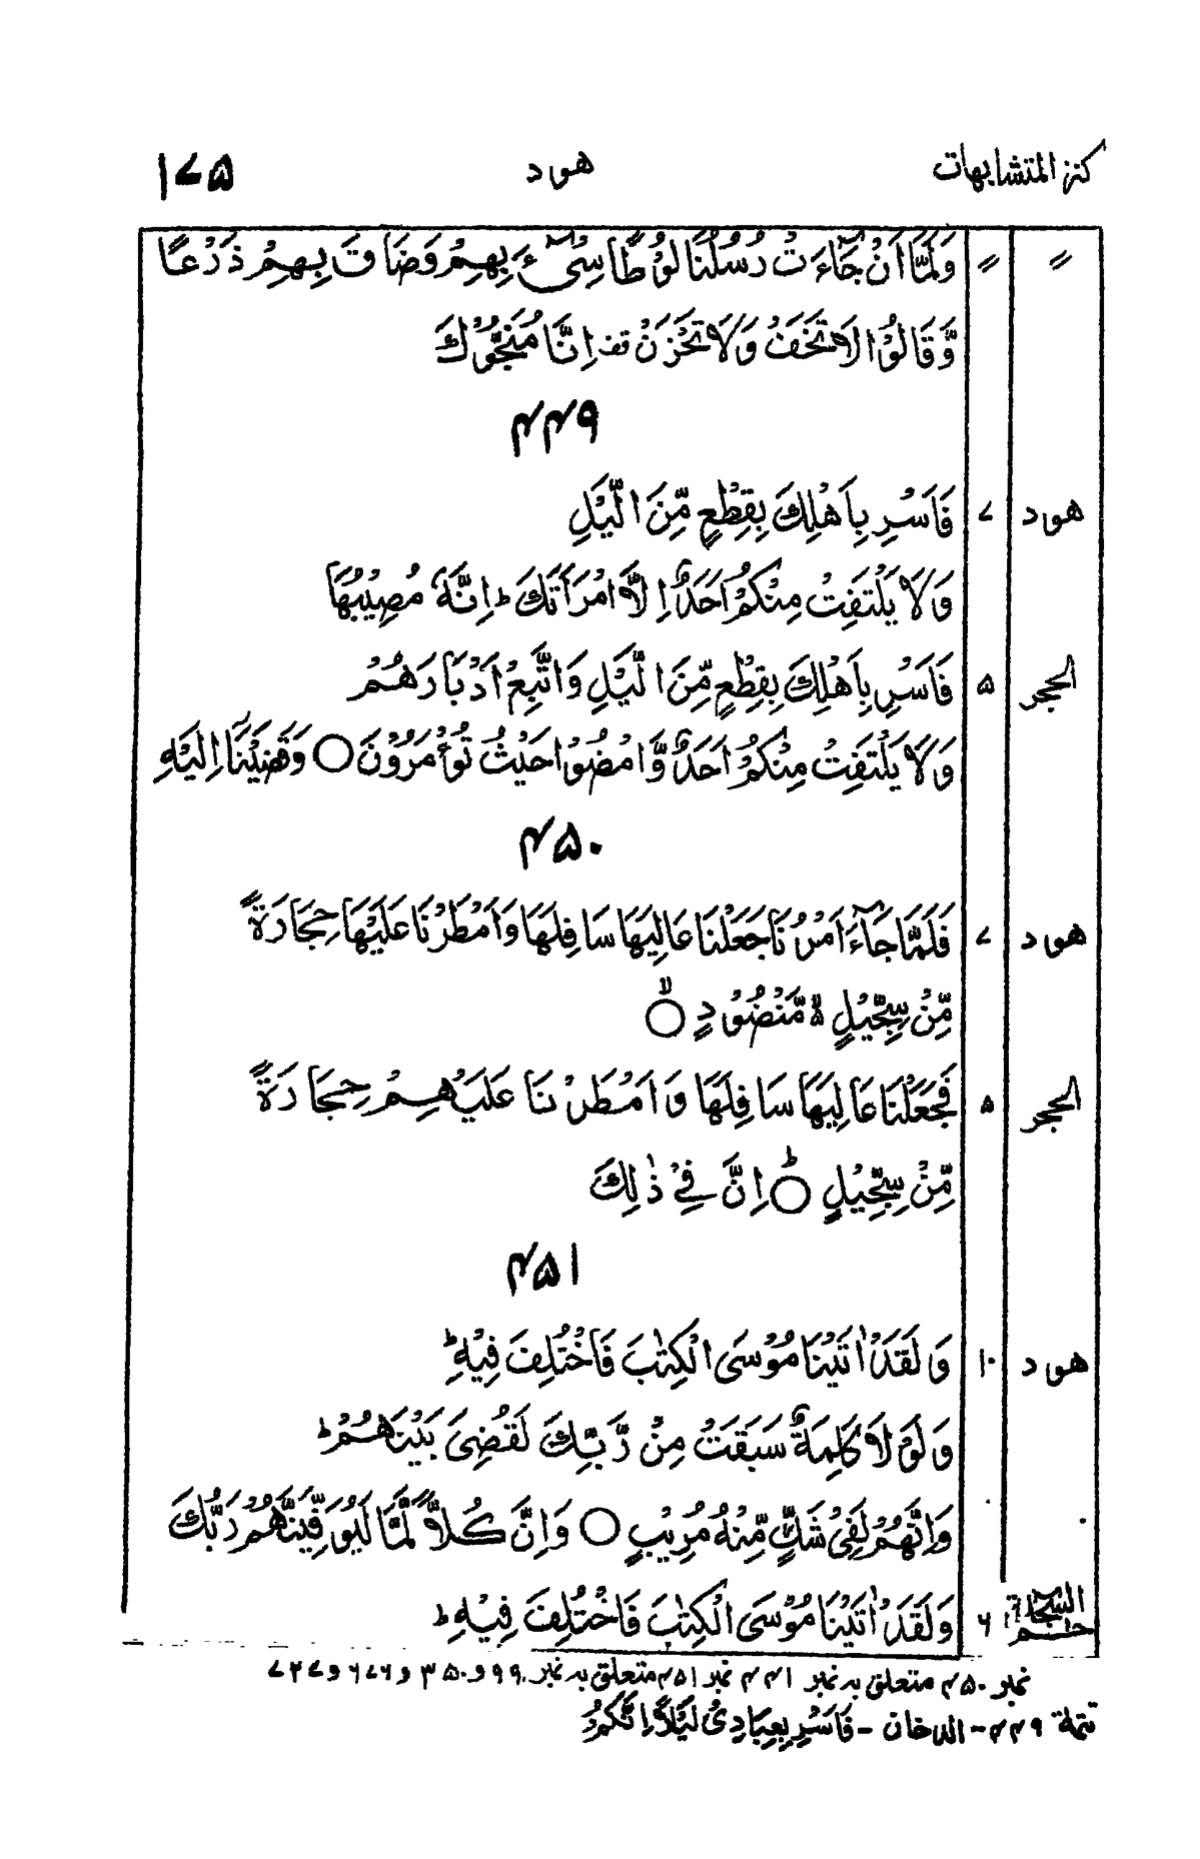 كنز المتشابهات هود ۱۷۵
〃 〃 وَلَمَّآ اَنْ جَآءَتْ رُسُلُنَا لُوْطًا سِیْٓءَ بِهِمْ وَضَاقَ بِهِمْ ذَرْعًا
وَّقَالُوْا لَا تَخَفْ وَلَا تَحْزَنْ قف اِنَّا مُنَجُّوْكَ
۴۴۹
هود ۷ فَاَسْرِ بِاَهْلِكَ بِقِطْعٍ مِّنَ الَّیْلِ
وَلَا یَلْتَفِتْ مِنْكُمْ اَحَدٌ اِلَّا امْرَاَتَكَ ؕ اِنَّهٗ مُصِیْبُهَا
الحجر ۵ فَاَسْرِ بِاَهْلِكَ بِقِطْعٍ مِّنَ الَّیْلِ وَاتَّبِعْ اَدْبَارَهُمْ
وَلَا یَلْتَفِتْ مِنْكُمْ اَحَدٌ وَّامْضُوْا حَیْثُ تُؤْمَرُوْنَ ○ وَقَضَیْنَآ اِلَیْهِ
۴۵۰
هود ۷ فَلَمَّا جَآءَ اَمْرُنَا جَعَلْنَا عَالِیَهَا سَافِلَهَا وَاَمْطَرْنَا عَلَیْهَا حِجَارَةً
مِّنْ سِجِّیْلٍ ۙ۬ مَّنْضُوْدٍ ○ ۙ
الحجر ۵ فَجَعَلْنَا عَالِیَهَا سَافِلَهَا وَاَمْطَرْنَا عَلَیْهِمْ حِجَارَةً
مِّنْ سِجِّیْلٍ ○ ؕ اِنَّ فِیْ ذٰلِكَ
۴۵۱
هود ۱۰ وَلَقَدْ اٰتَیْنَا مُوْسَی الْكِتٰبَ فَاخْتُلِفَ فِیْهِ ؕ
وَلَوْلَا كَلِمَةٌ سَبَقَتْ مِنْ رَّبِّكَ لَقُضِیَ بَیْنَهُمْ ؕ
وَاِنَّهُمْ لَفِیْ شَكٍّ مِّنْهُ مُرِیْبٍ ○ وَاِنَّ كُلًّا لَّمَّا لَیُوَفِّیَنَّهُمْ رَبُّكَ
السجدة حٰم ۶ وَلَقَدْ اٰتَیْنَا مُوْسَی الْكِتٰبَ فَاخْتُلِفَ فِیْهِ ؕ
نمبر ۴۵۰ متعلق به نمبر ۴۴۱ نمبر ۴۵۱ متعلق به نمبر ۹۹ و ۳۵۰ و ۶۷۶ و ۷۲۷
تتمة ۴۴۹ - الدخان - فَاَسْرِ بِعِبَادِیْ لَیْلًا اِنَّكُمْ